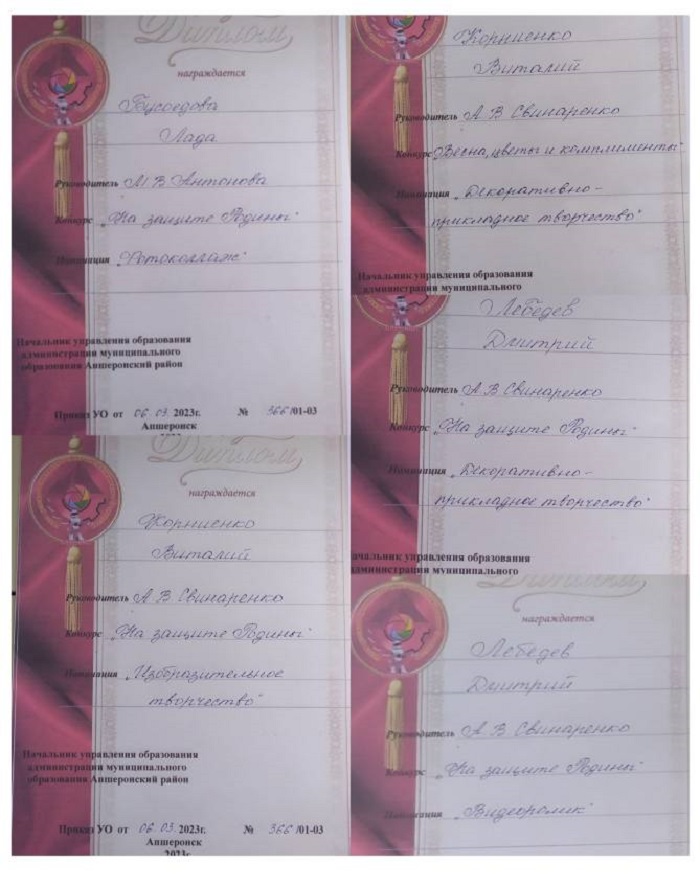 Диплом
награждается
Бусоедова
Лада
Руководитель М В Антонова
Конкурс „На защите Родины"
Номинация „Фотоколлаж"
Начальник управления образования
администрации муниципального
образования Апшеронский район
Приказ УО от 06.03.2023г. № 366/01-03
Апшеронск
Диплом
награждается
Корниенко
Виталий
Руководитель А В Свинаренко
Конкурс „На защите Родины"
Номинация „Изобразительное
творчество"
Начальник управления образования
администрации муниципального
образования Апшеронский район
Приказ УО от 06.03.2023г. № 366/01-03
Апшеронск
2023г.
Корниенко
Виталий
Руководитель А В Свинаренко
Конкурс „Весна, цветы и комплименты"
Номинация „Декоративно-
прикладное творчество"
Начальник управления образования
администрации муниципального
Лебедев
Дмитрий
Руководитель А.В.Свинаренко
Конкурс „На защите Родины"
Номинация „Декоративно-
прикладное творчество"
ачальник управления образования
администрации муниципального
Диплом
награждается
Лебедев
Дмитрий
Руководитель А. В. Свинаренко
Конкурс „На защите Родины"
Номинация „Видеоролик"